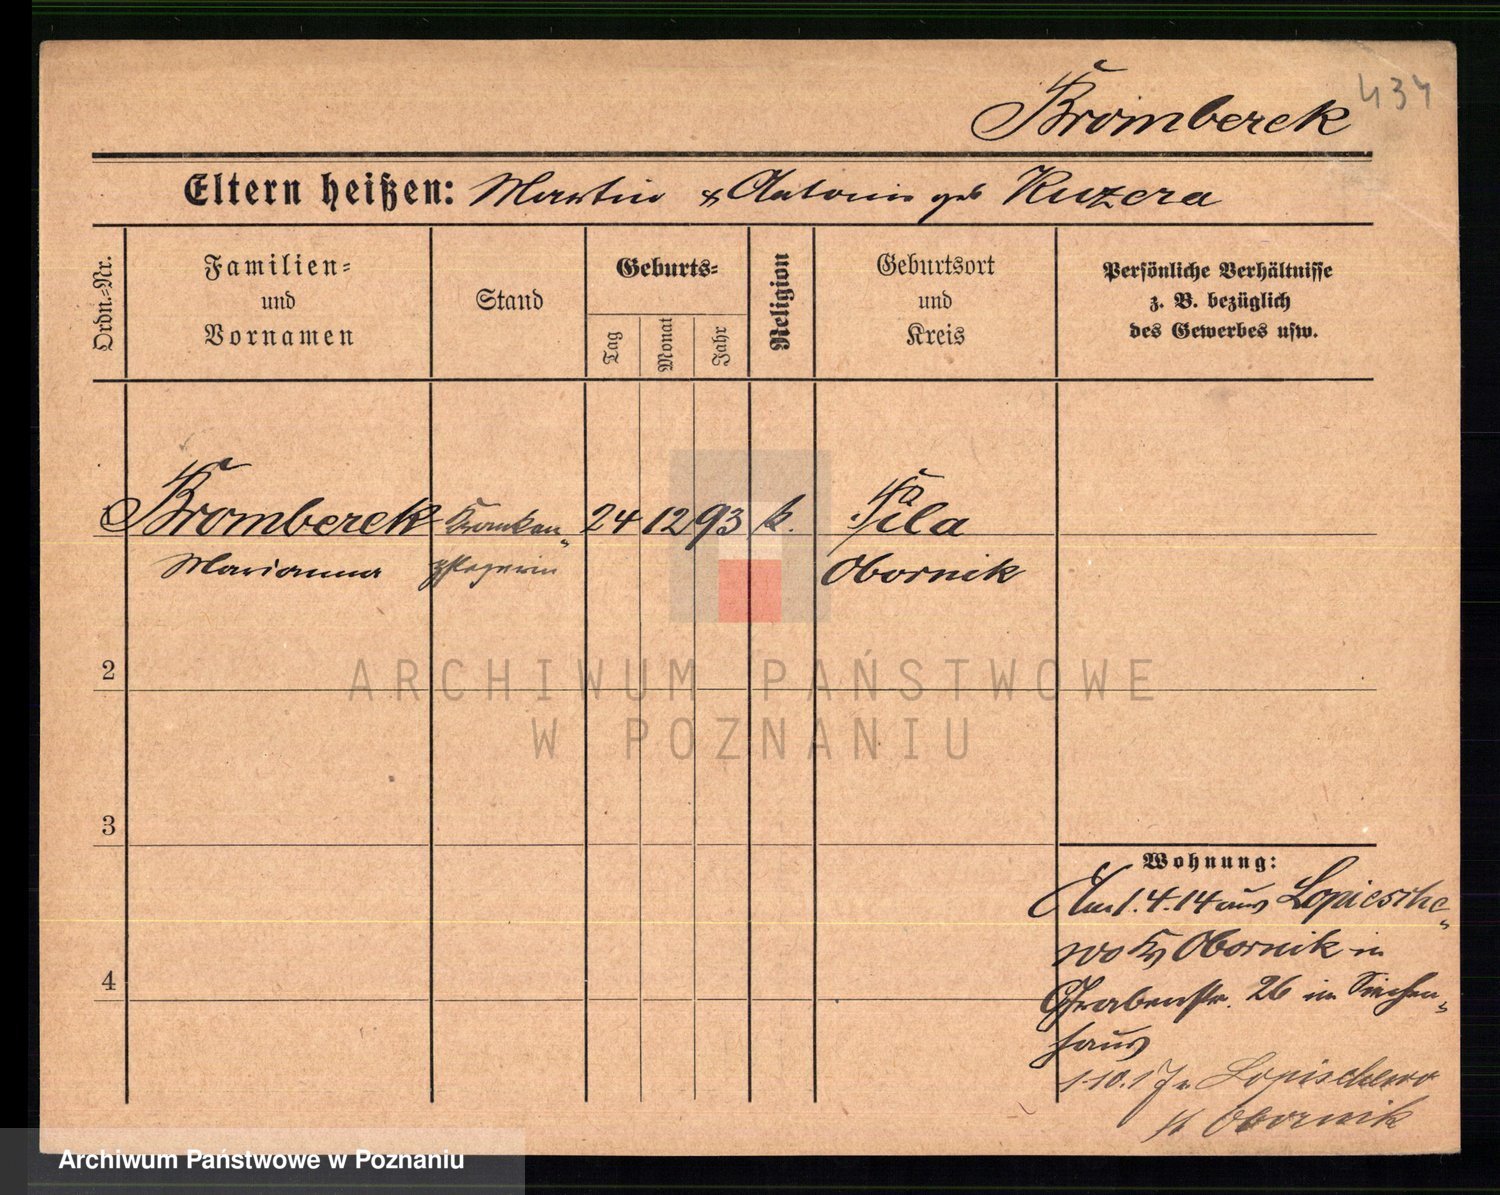 434
Bromberek
Eltern heißen: Martin & Antonie geb Kuzera
Ordn.-Nr.
Familien-
und
Vornamen
Stand
Geburts-
Tag
Monat
Jahr
Religion
Geburtsort
und
Kreis
Persönliche Verhältnisse
z. B. bezüglich
des Gewerbes usw.
Bromberek Kranken- 24 12 93 k. Pila
Marianna pflegerin Obornik
2
3
4
Wohnung:
Am 1.4.14 aus Lopiesche-
wo Kr Obornik in
Grabenstr. 26 im Siechen-
haus
1.10.17 n Lopischewo
Obornik
ARCHIWUM PAŃSTWOWE
W POZNANIU
Archiwum Państwowe w Poznaniu